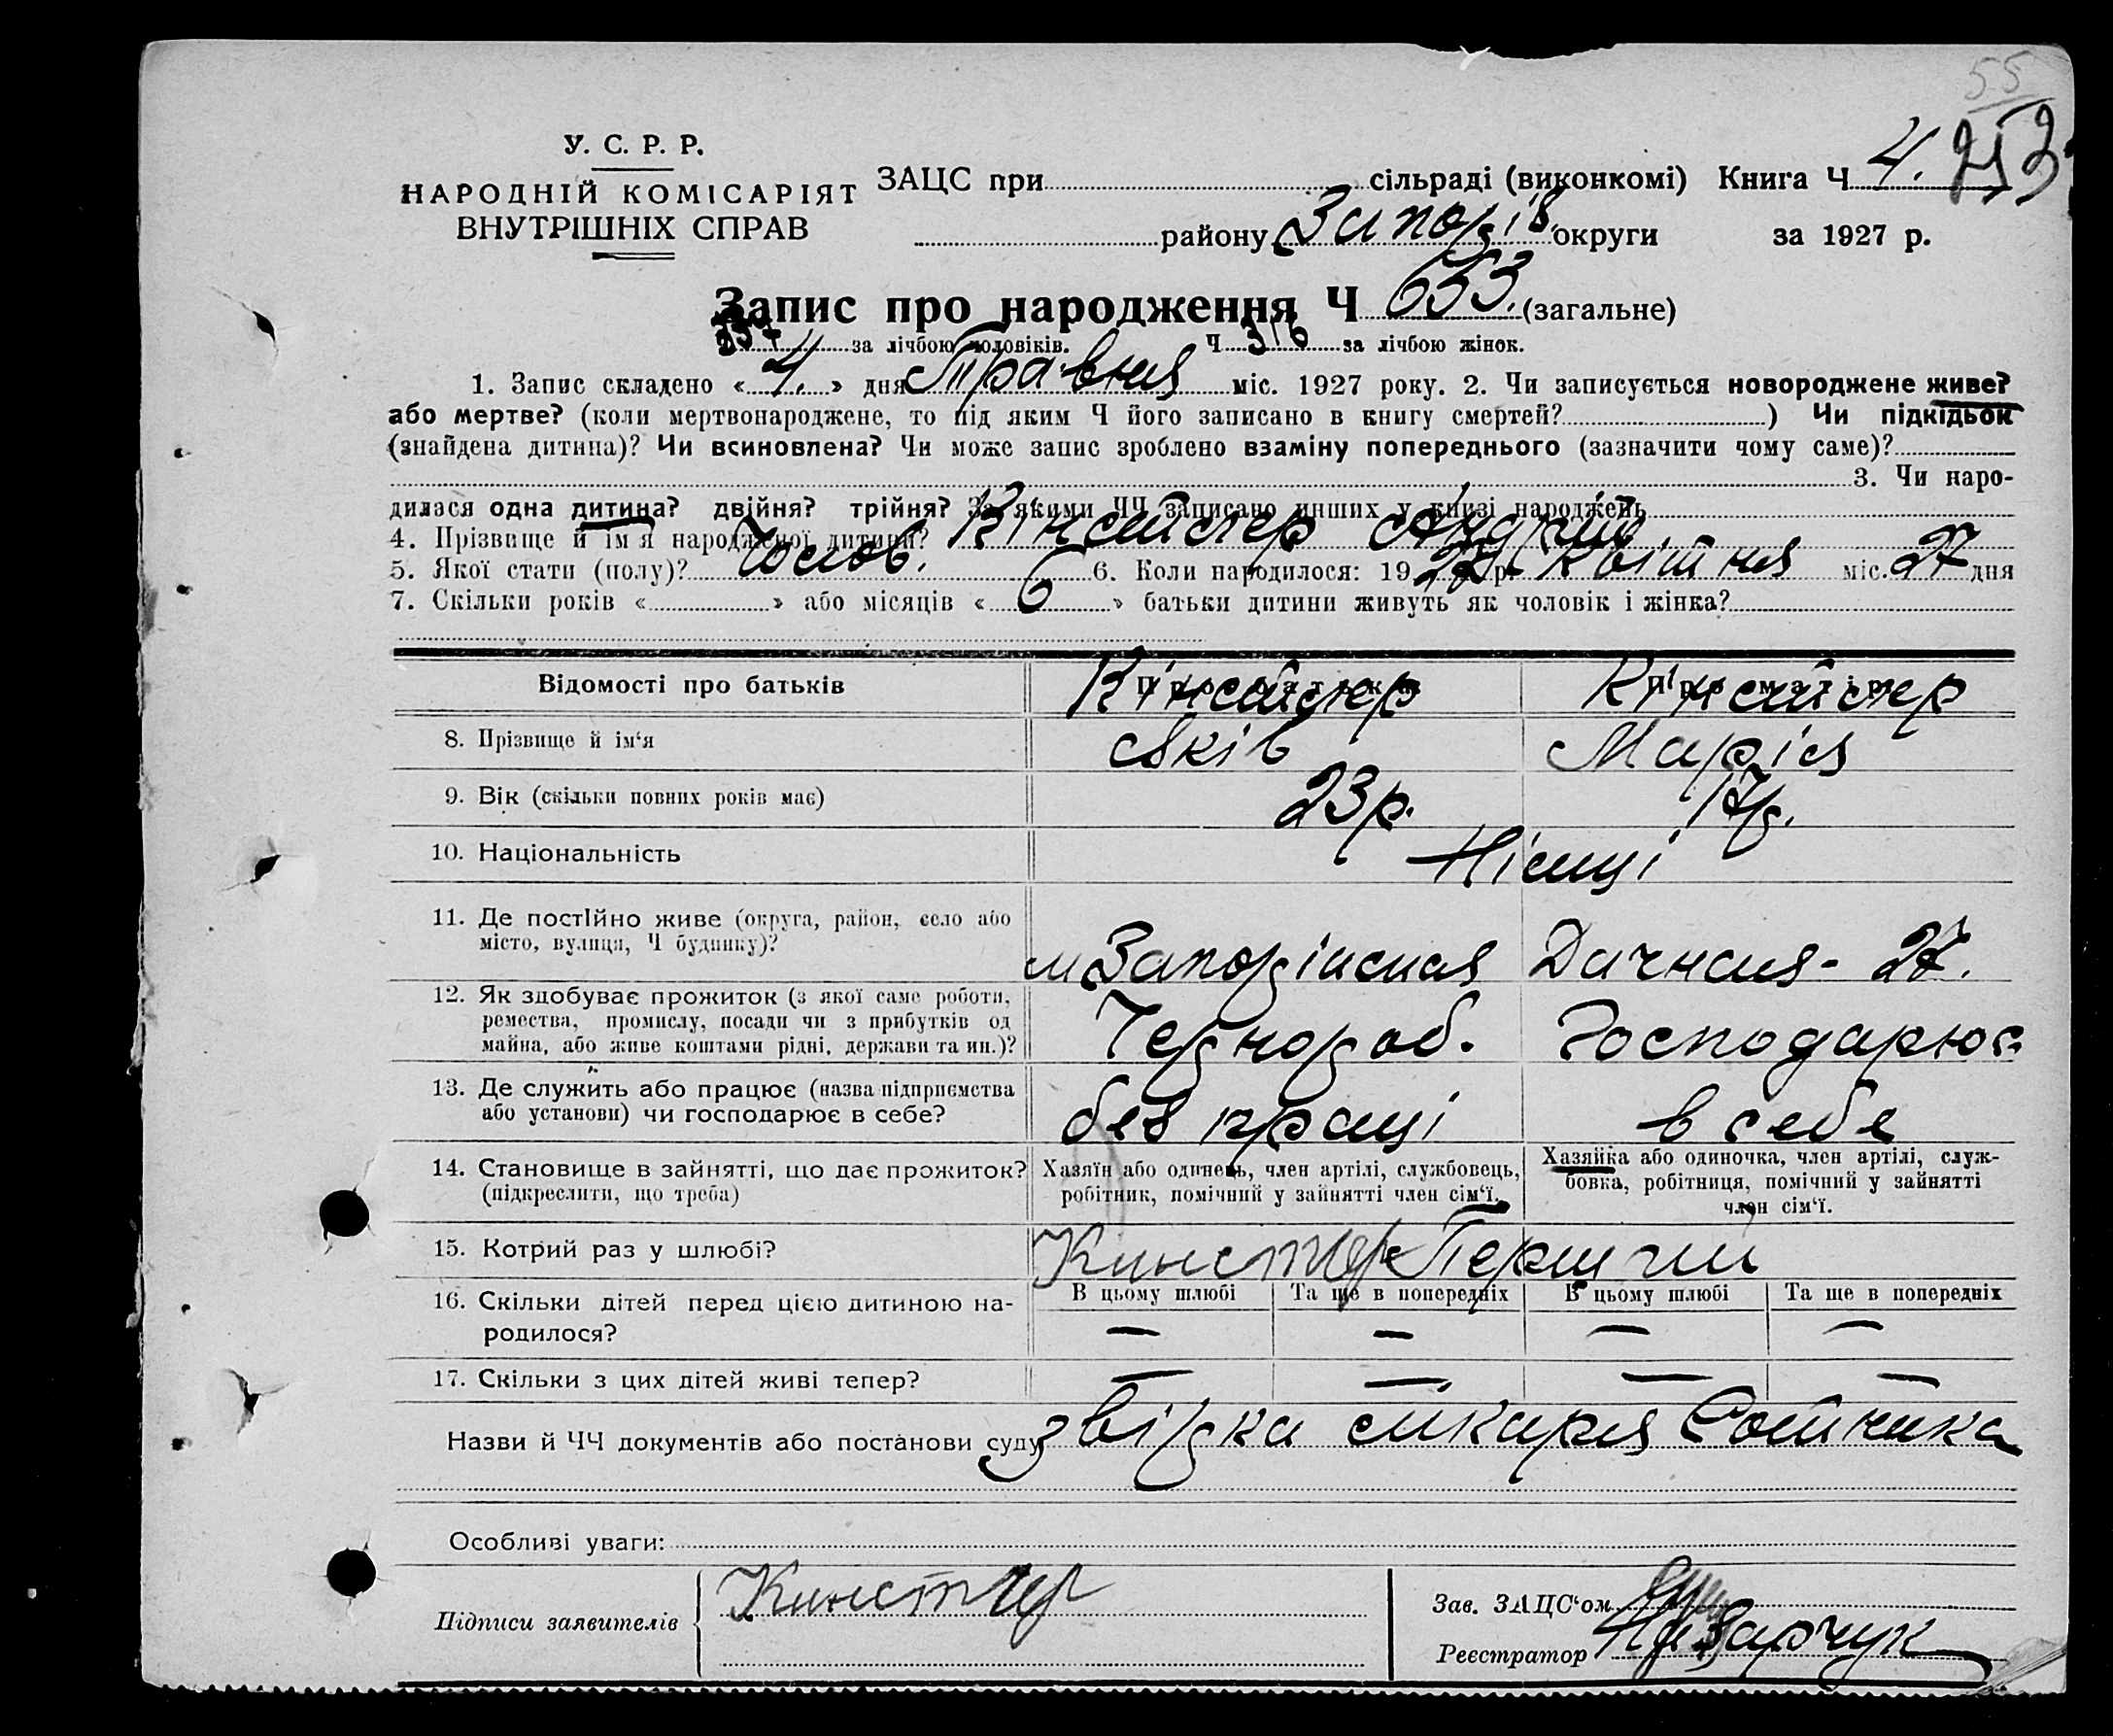 55
253
У. С. Р. Р.
НАРОДНІЙ КОМІСАРІЯТ
ВНУТРІШНІХ СПРАВ
ЗАЦС при сільраді (виконкомі) Книга Ч 4.
району Запоріз. округи за 1927 р.
Запис про народження Ч 653. (загальне)
за лічбою чоловіків. Ч 316 за лічбою жінок.
1. Запис складено « 4. » дня Травня міс. 1927 року. 2. Чи записується новороджене живе?
або мертве? (коли мертвонароджене, то під яким Ч його записано в книгу смертей? ) Чи підкідьок
(знайдена дитина)? Чи всиновлена? Чи може запис зроблено взаміну попереднього (зазначити чому саме)?
3. Чи наро-
дилася одна дитина? двійня? трійня? За якими ЧЧ записано инших у книзі народжень
4. Прізвище й ім'я народженої дитини? Кінстлєр Андрій
5. Якої стати (полу)? Чолов. 6. Коли народилося: 1927 р. Квітня міс. 27 дня
7. Скільки років « » або місяців « 6 » батьки дитини живуть як чоловік і жінка?
Відомості про батьків Про батька Про матір
Кінстлєр Кінстлєр
8. Прізвище й ім'я Яків Марія
9. Вік (скільки повних років має) 23 р. 17 р.
10. Національність Німці
11. Де постійно живе (округа, район, село або
місто, вулиця, Ч будинку)?
м Запоріжжя Дачная - 27.
12. Як здобуває прожиток (з якої саме роботи,
ремества, промислу, посади чи з прибутків од
майна, або живе коштами рідні, держави та ин.)?
Чернороб. Господарює
13. Де служить або працює (назва підприємства
або установи) чи господарює в себе?
без праці в себе
14. Становище в зайнятті, що дає прожиток?
(підкреслити, що треба)
Хазяїн або одинець, член артілі, службовець,
робітник, помічний у зайнятті член сім'ї.
Хазяйка або одиночка, член артілі, служ-
бовка, робітниця, помічний у зайнятті
член сім'ї.
15. Котрий раз у шлюбі? Кинстлер Перший
16. Скільки дітей перед цією дитиною на-
родилося?
В цьому шлюбі Та ще в попередніх В цьому шлюбі Та ще в попередніх
— — — —
17. Скільки з цих дітей живі тепер? — — — —
Назви й ЧЧ документів або постанови суду звідка лікаря Сотника
Особливі уваги:
Підписи заявителів Кинстлер
Зав. ЗАЦС'ом
Реєстратор Назарчук